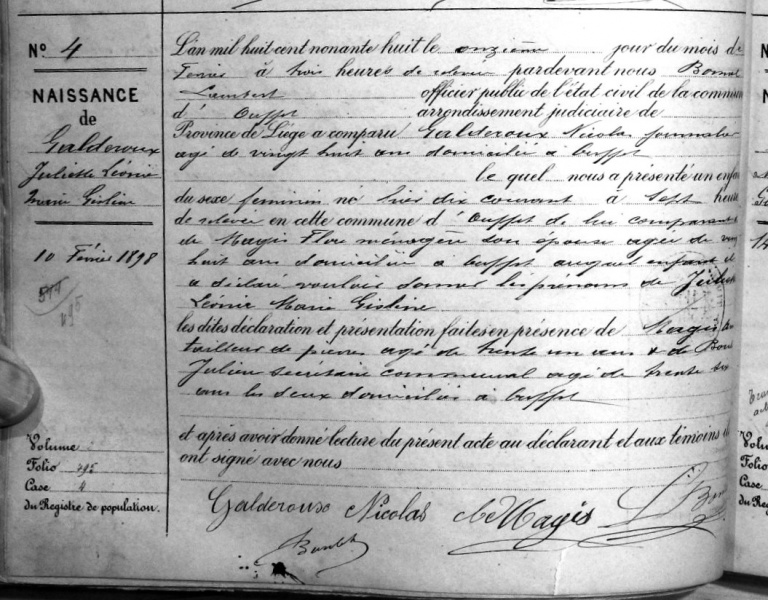 N° 4
NAISSANCE
de
Galderoux
Juliette Léonie
Marie Gisline
10 Février 1898
Volume
Folio 295
Case 4
du Registre de population.
L'an mil huit cent nonante huit le onzième jour du mois de
Février à trois heures de relevée pardevant nous
Lambert officier public de l'état civil de la commune
d' Ouffet arrondissement judiciaire de
Province de Liège a comparu Galderoux Nicolas journalier
agé de vingt huit ans domicilié à Ouffet
le quel nous a présenté un enfant
du sexe féminin né hier dix courant à sept heures
de relevée en cette commune d' Ouffet de lui comparant
de Magis Flore ménagère son épouse agée de vingt
huit ans domiciliée à Ouffet auquel enfant il
a déclaré vouloir donner les prénoms de Juliette
Léonie Marie Gisline
les dites déclaration et présentation faites en présence de Magis
tailleur de pierres agé de trente un ans & de
Julien secrétaire communal agé de trente six
ans les deux domiciliés à Ouffet
et après avoir donné lecture du présent acte au déclarant et aux témoins ils
ont signé avec nous
Galderoux Nicolas Magis